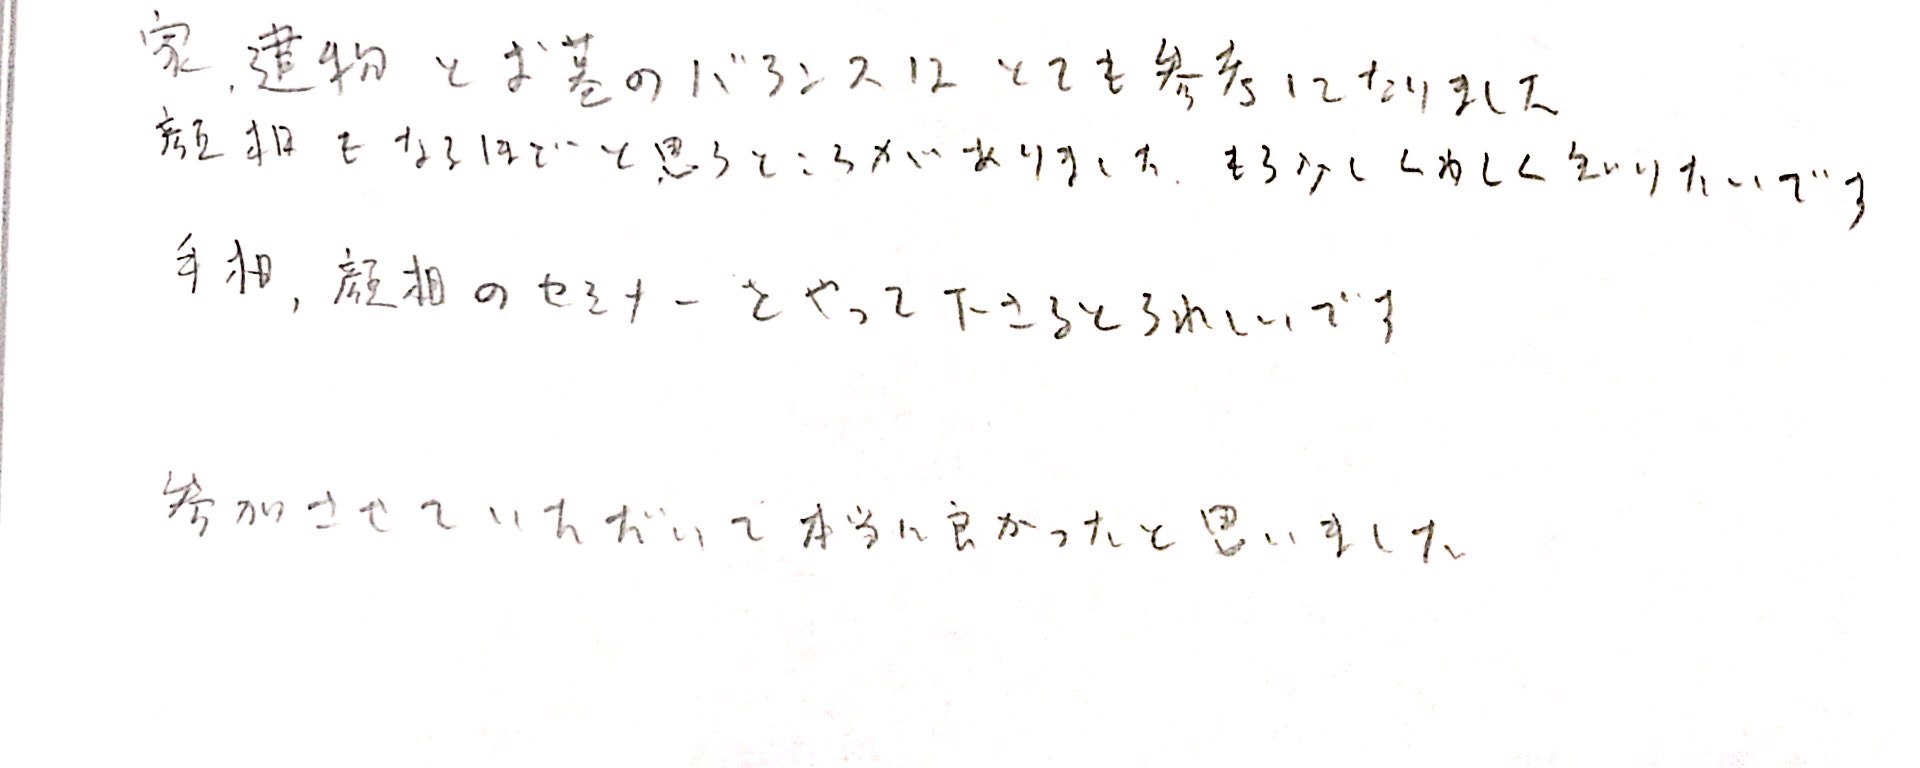 家、建物とお墓のバランスはとても参考になりました
顔相もなるほどと思うところがありました。もう少しくわしく知りたいです
手相、顔相のセミナーをやって下さるとうれしいです
参加させていただいて本当に良かったと思いました